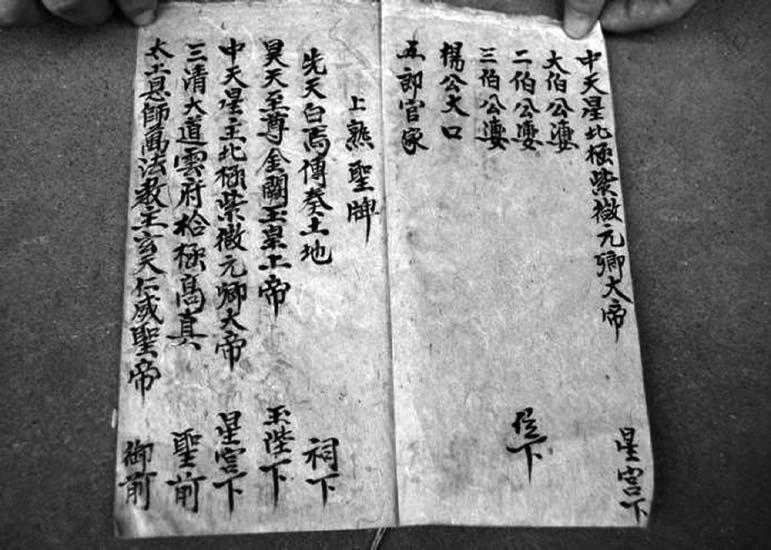 中天星北極紫微元卿大帝 星宮下
大伯公婆
二伯公婆 位下
三伯公婆
楊公大口
五郎官家
上熟聖牌
先天白焉傳奏土地 祠下
昊天至尊金闕玉皇上帝 玉陛下
中天星主北極紫微元卿大帝 星宮下
三清大道雲府拾極高真 聖前
太上恩師萬法教主玄天仁威聖帝 御前